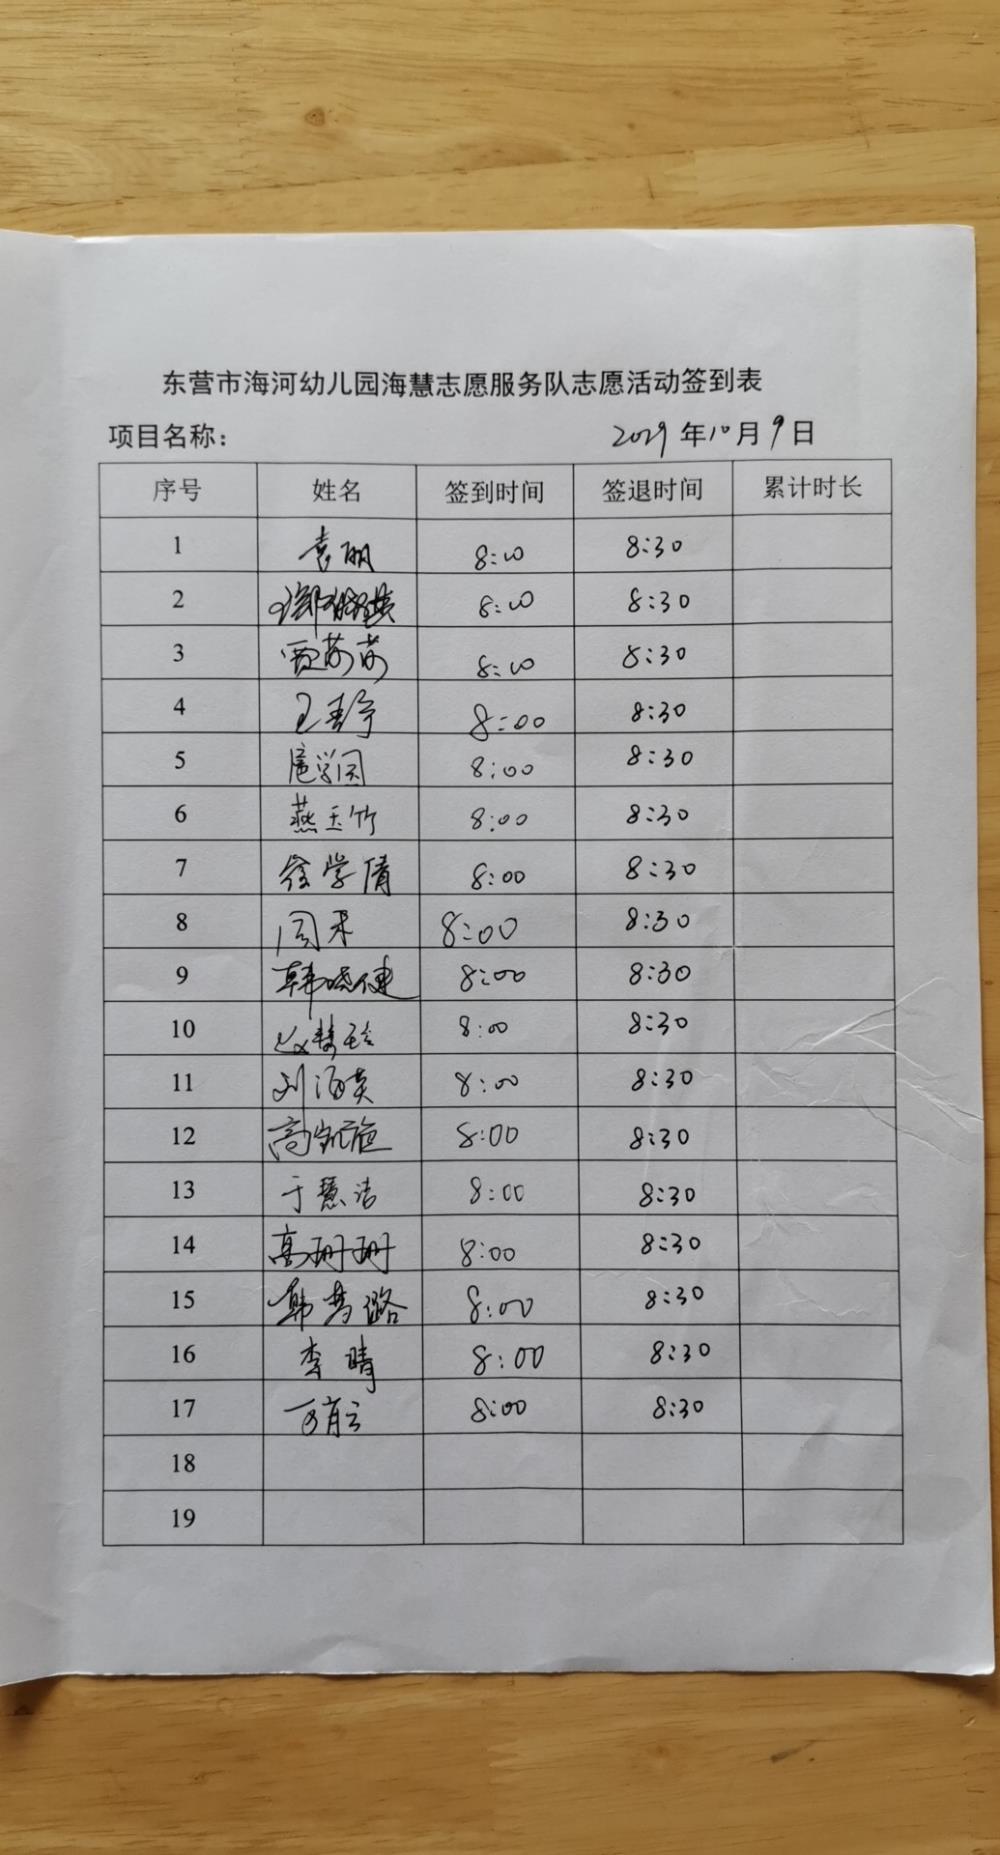 东营市海河幼儿园海慧志愿服务队志愿活动签到表
项目名称： 年10月9日
序号 姓名 签到时间 签退时间 累计时长
1 袁丽 8:00 8:30
2 8:00 8:30
3 贾莎莎 8:00 8:30
4 王春宁 8:00 8:30
5 8:00 8:30
6 燕玉竹 8:00 8:30
7 徐学倩 8:00 8:30
8 周采 8:00 8:30
9 韩晓健 8:00 8:30
10 赵慧玲 8:00 8:30
11 刘海英 8:00 8:30
12 8:00 8:30
13 于慧洁 8:00 8:30
14 高珊珊 8:00 8:30
15 韩梦璐 8:00 8:30
16 李晴 8:00 8:30
17 8:00 8:30
18
19